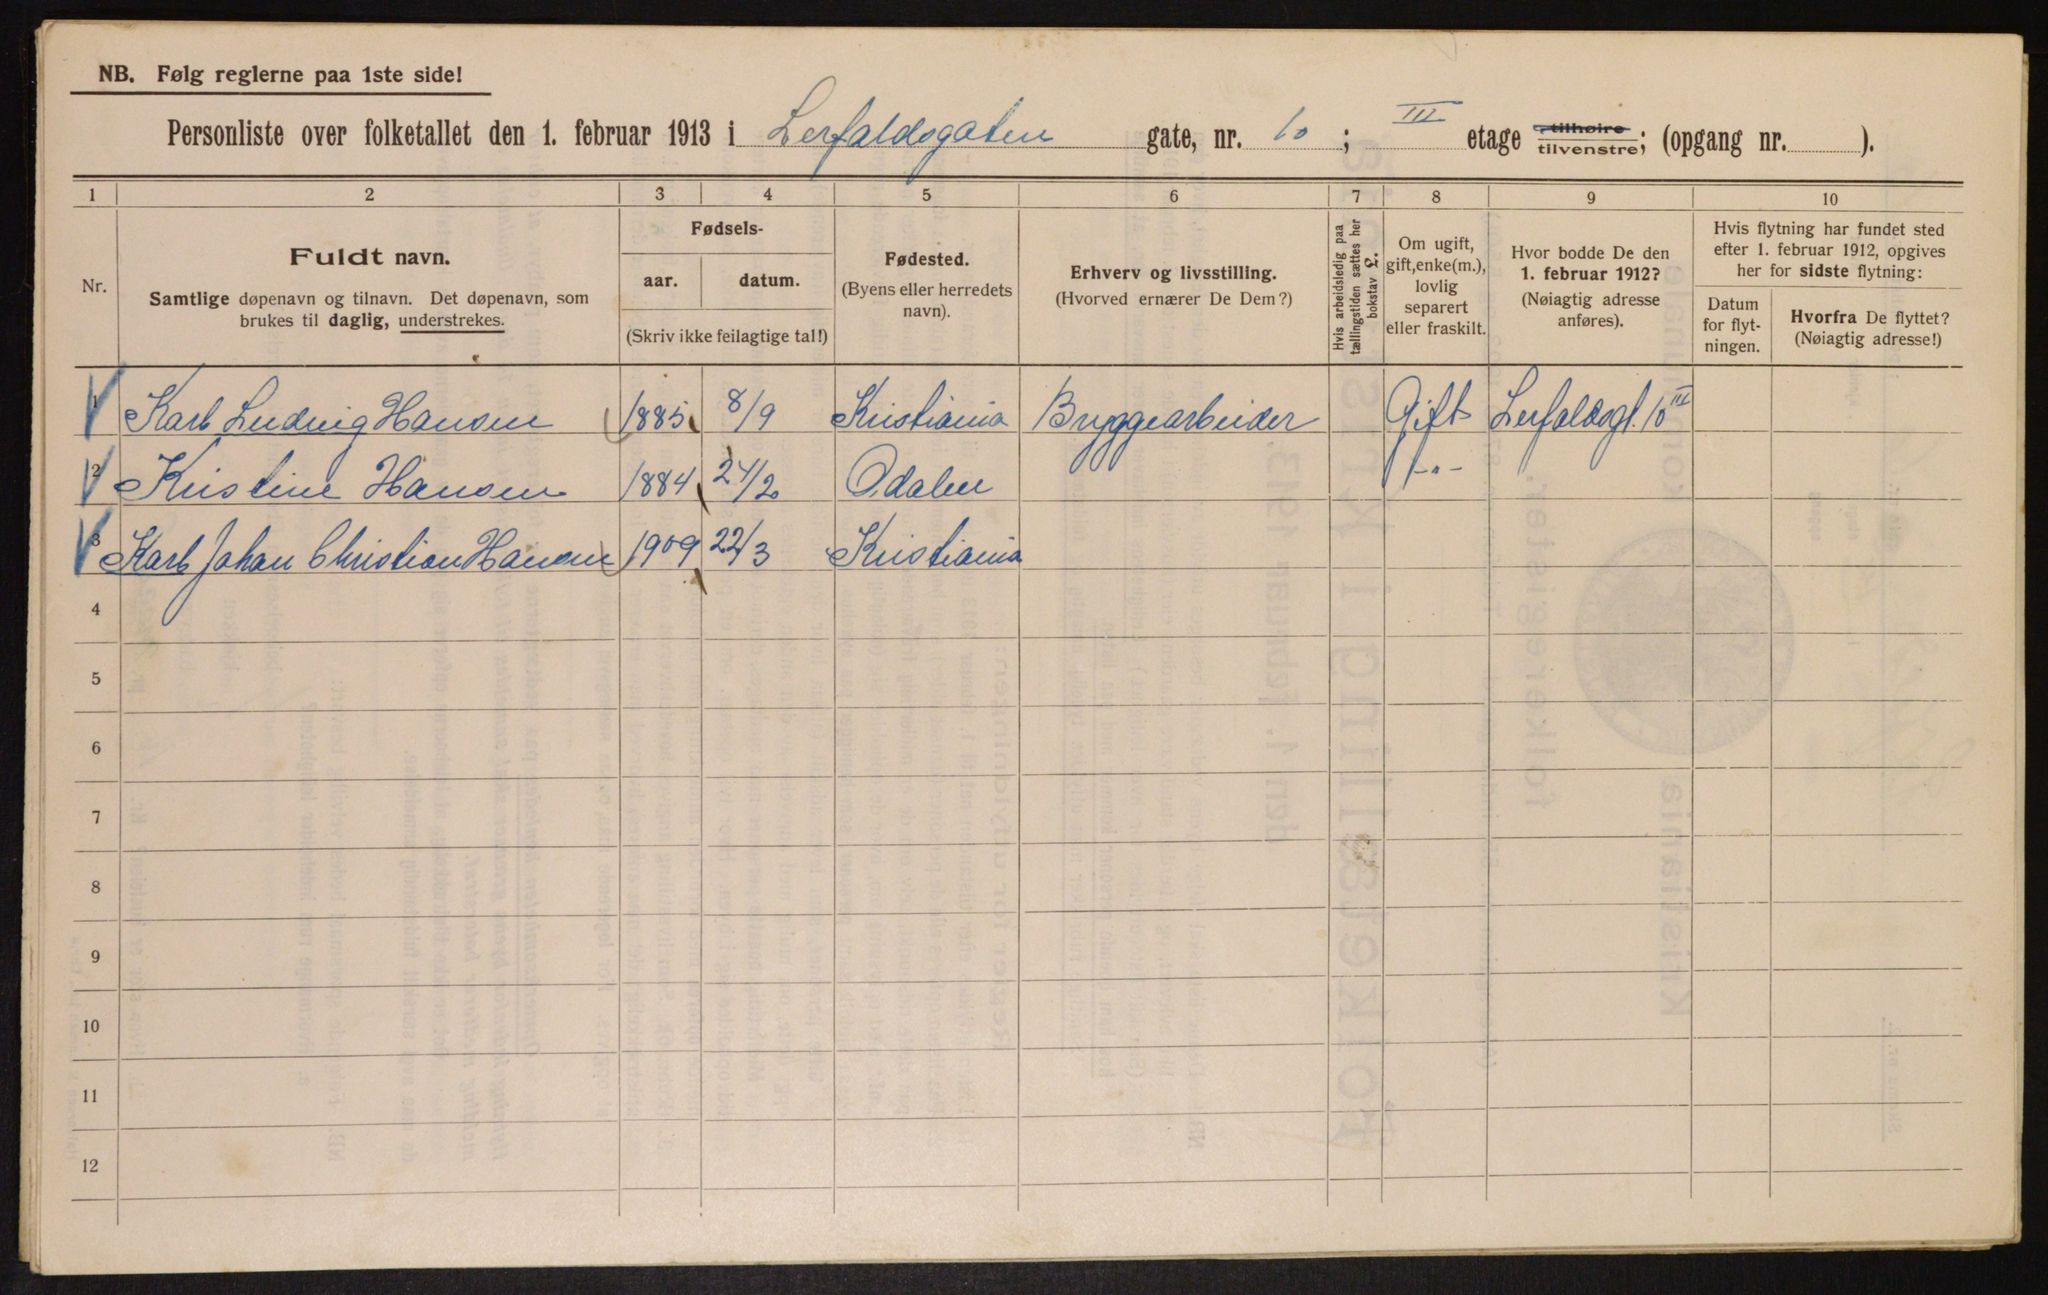 NB. Følg reglerne paa 1ste side!
Personliste over folketallet den 1. februar 1913 i Lerfaldsgaten gate, nr. 10; III etage tilhøire tilvenstre; (opgang nr. ).
1 2 3 4 5 6 7 8 9 10
Nr.
Fuldt navn.
Samtlige døpenavn og tilnavn. Det døpenavn, som
brukes til daglig, understrekes.
Fødsels-
aar. datum.
(Skriv ikke feilagtige tal!)
Fødested.
(Byens eller herredets
navn).
Erhverv og livsstilling.
(Hvorved ernærer De Dem?)
Hvis arbeidsledig paa
tællingstiden sættes her
bokstav L.
Om ugift,
gift, enke(m.),
lovlig
separert
eller fraskilt.
Hvor bodde De den
1. februar 1912?
(Nøiagtig adresse
anføres).
Hvis flytning har fundet sted
efter 1. februar 1912, opgives
her for sidste flytning:
Datum
for flyt-
ningen.
Hvorfra De flyttet?
(Nøiagtig adresse!)
1 Karl Ludvig Hansen 1885 8/9 Kristiania Byggearbeider Gift Lerfaldsgt. 10 III
2 Kristine Hansen 1884 24/20 Odalen -"-
3 Karl Johan Christian Hansen 1909 22/3 Kristiania
4
5
6
7
8
9
10
11
12